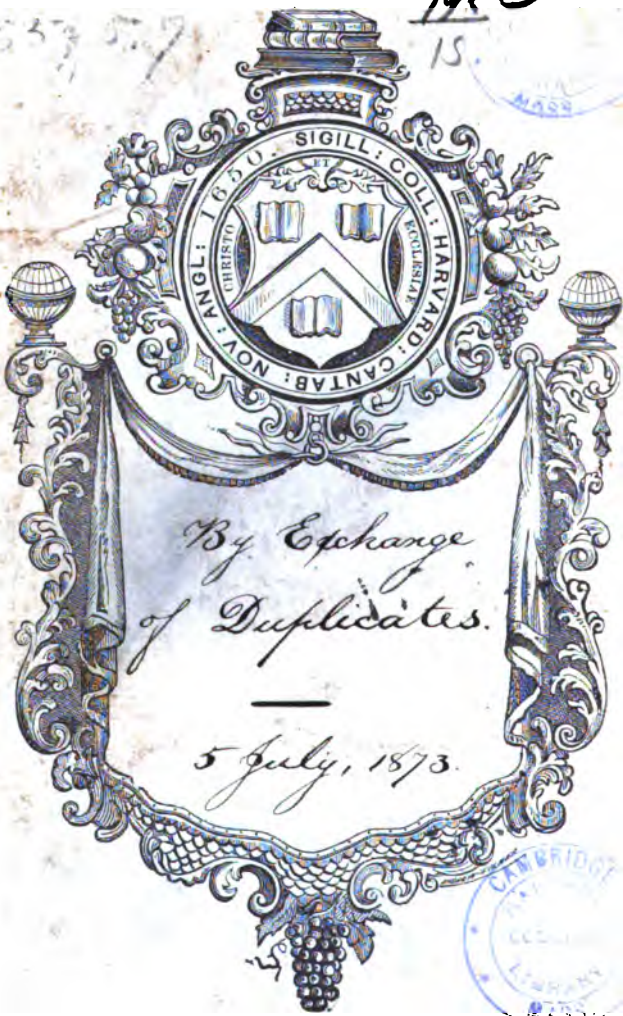 15
MASS
SIGILL: COLL: HARVARD: CANTAB: NOV: ANGL: 1650.
ET
CHRISTO
ECCLESIAE
By Exchange
of Duplicates.
5 July, 1873.
CAMBRIDGE
LIBRARY
MASS